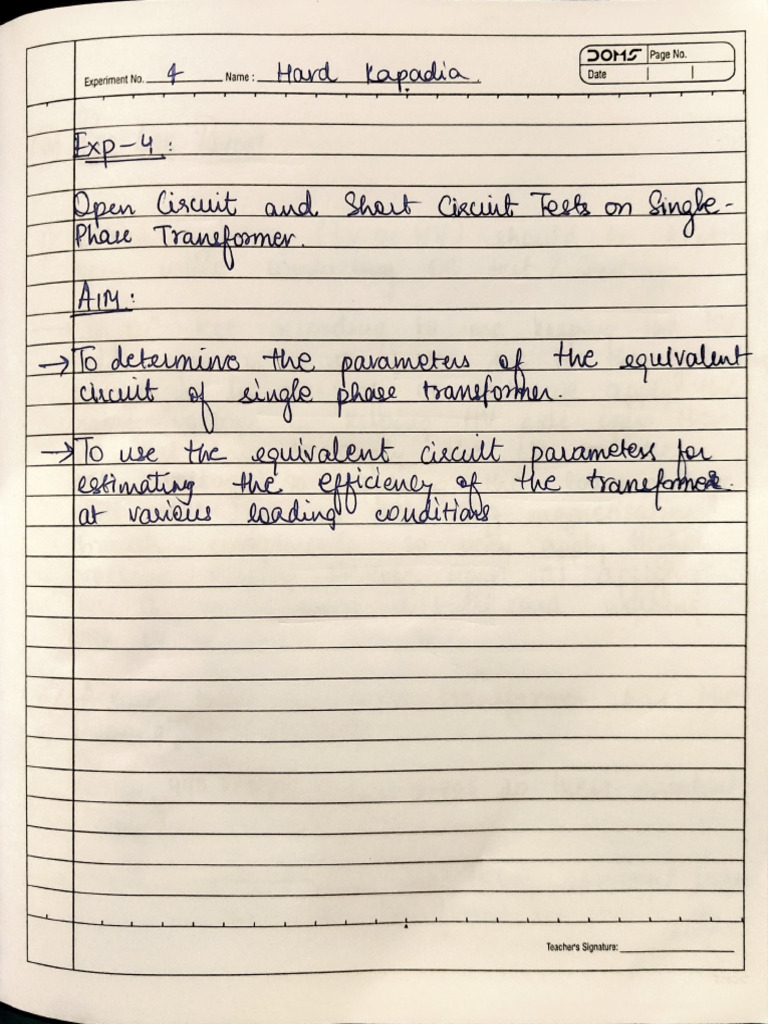 DOMS Page No.
Experiment No. 4 Name: Hard Kapadia.
Date
Exp-4:
Open Circuit and Short Circuit Tests on Single-
Phase Transformer.
AIM:
→ To determine the parameters of the equivalent
circuit of single phase transformer.
→ To use the equivalent circuit parameters for
estimating the efficiency of the transformer.
at various loading conditions
Teacher's Signature: